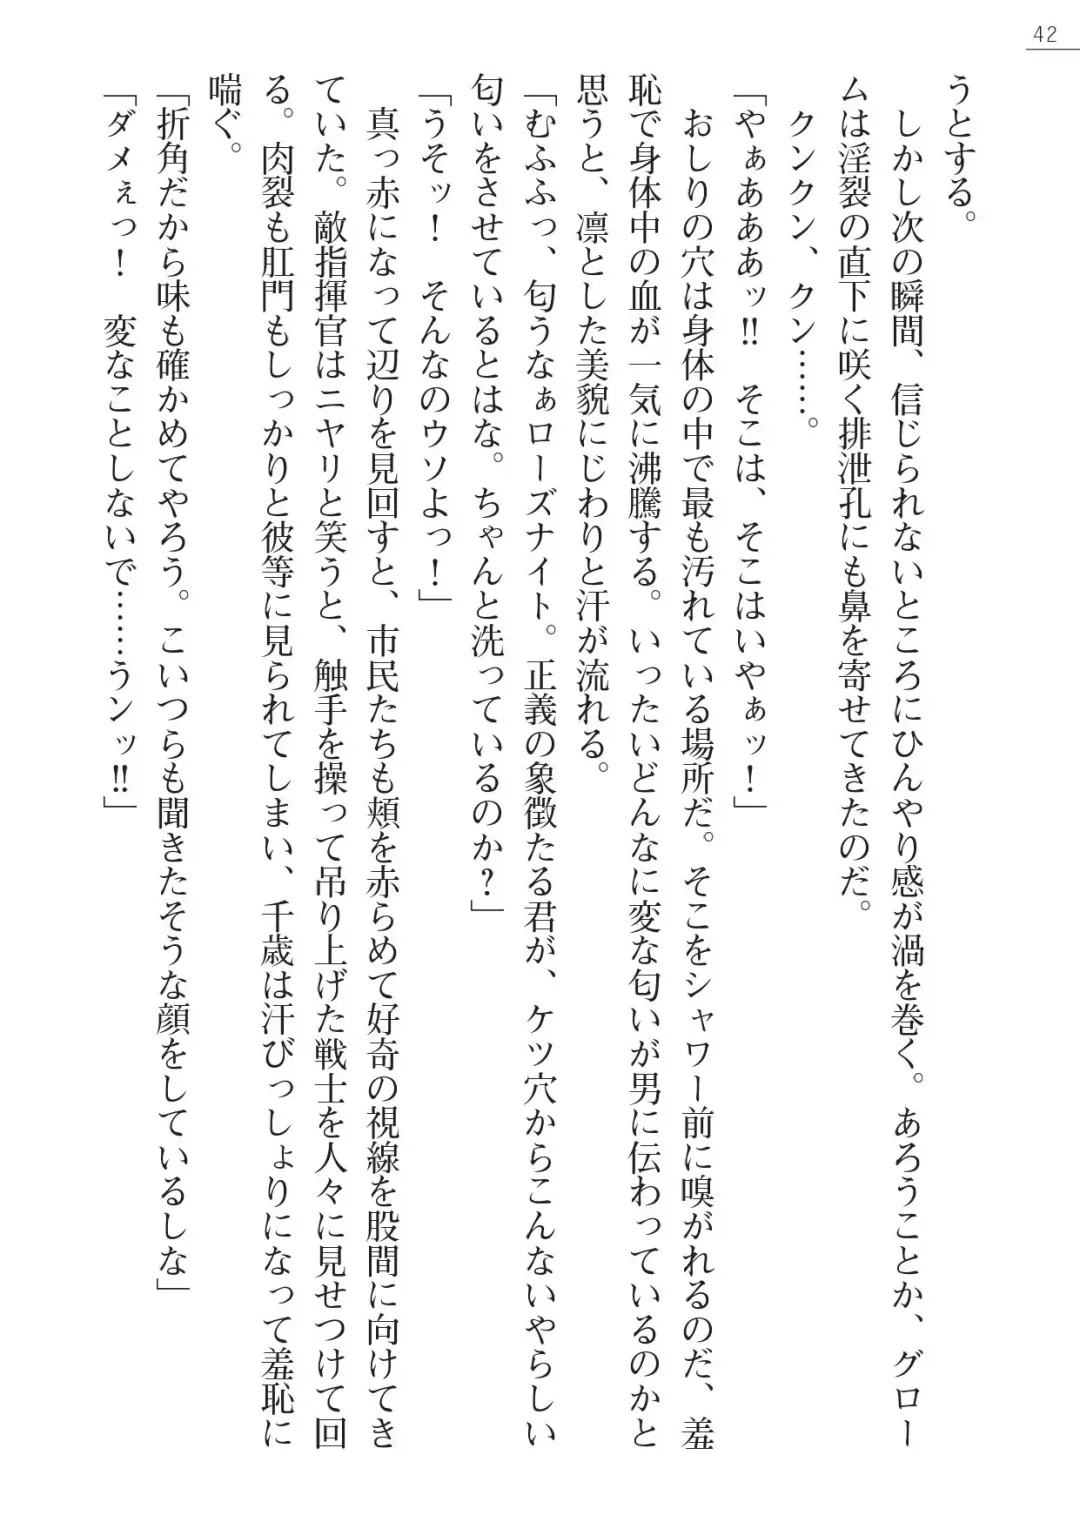 42
うとする。
しかし次の瞬間、信じられないところにひんやり感が渦を巻く。あろうことか、グロー
ムは淫裂の直下に咲く排泄孔にも鼻を寄せてきたのだ。
クンクン、クン……。
「やぁああぁッ‼　そこは、そこはいやぁッ！」
おしりの穴は身体の中で最も汚れている場所だ。そこをシャワー前に嗅がれるのだ、羞
恥で身体中の血が一気に沸騰する。いったいどんなに変な匂いが男に伝わっているのかと
思うと、凛とした美貌にじわりと汗が流れる。
「むふふっ、匂うなぁローズナイト。正義の象徴たる君が、ケツ穴からこんないやらしい
匂いをさせているとはな。ちゃんと洗っているのか？」
「うそッ！　そんなのウソよっ！」
真っ赤になって辺りを見回すと、市民たちも頬を赤らめて好奇の視線を股間に向けてき
ていた。敵指揮官はニヤリと笑うと、触手を操って吊り上げた戦士を人々に見せつけて回
る。肉裂も肛門もしっかりと彼等に見られてしまい、千歳は汗びっしょりになって羞恥に
喘ぐ。
「折角だから味も確かめてやろう。こいつらも聞きたそうな顔をしているしな」
「ダメぇっ！　変なことしないで……うンッ‼」